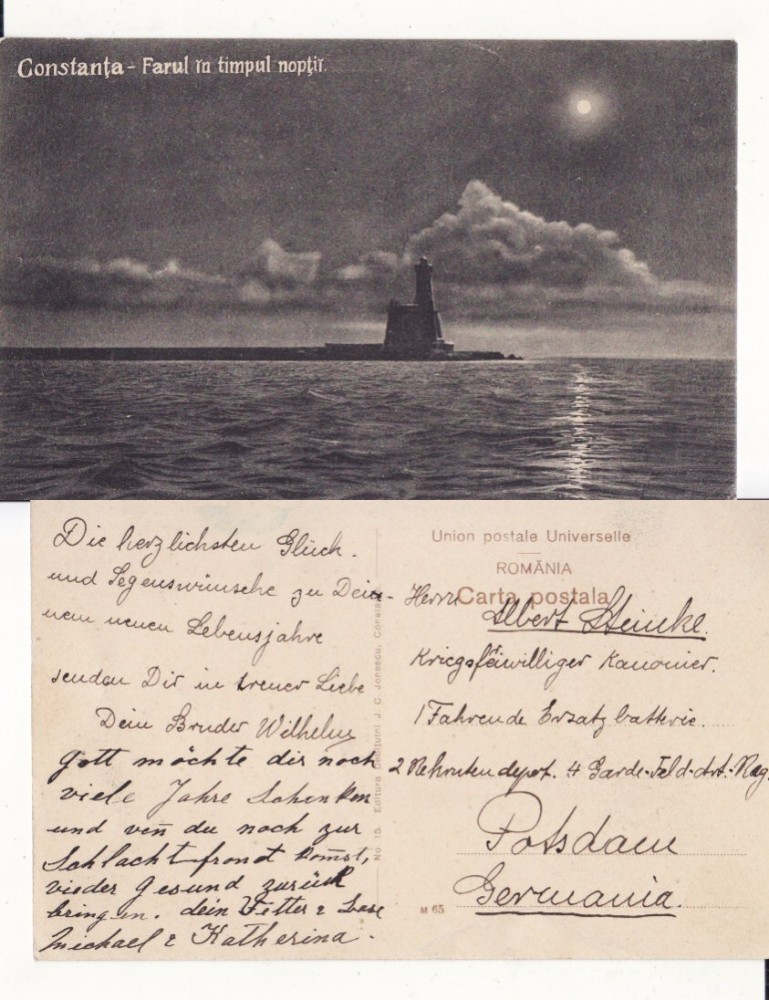 Constanța - Farul în timpul nopții.
Die herzlichsten Glück-
und Segenswünsche zu Dei-
nem neuen Lebensjahre
senden Dir in treuer Liebe
Dein Bruder Wilhelm
Gott möchte dir noch
viele Jahre Schenken
und ven du noch zur
Schlachtfrondt komst,
vieder Gesund zurük
bringen. dein Vetter & Base
Michael & Katherina.
No. 15. Editura J. C. Jonescu, Constanța
Union postale Universelle
ROMÂNIA
Carta postala
Herrn
Albert Steincke.
Kriegsfreiwilliger Kanonier.
1 Fahrende Ersatzbatterie.
2 Rekrutendepot. 4 Garde-Feld-Art.-Reg.
Potsdam
Germania.
M 65